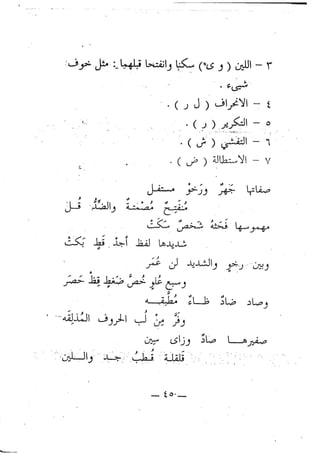 ٣ – اللين ( و ى ) سكنا وانفتحا قبلهما : مثل خوف
شىء .
٤ – الانحراف ( ل ر ) .
٥ – التكرير ( ر ) .
٦ – التفشي ( ش ) .
٧ – الاستطالة ( ض ) .
صفاتها جهر ورخو مستفل
منفتح مصمتة والضد قل
مهموسها فحثه شخص سكت
شديدها لفظ أجد قط بكت
وبين رخو والشديد لن عمر
وسبع علو خص ضغط قظ حصر
وصاد ضاد طاء ظاء مطبقه
وفر من لب الحروف المذلقه
صفيرها صاد وزاى سين
قلقلة قطب جد واللين
— ٤٥٠ —